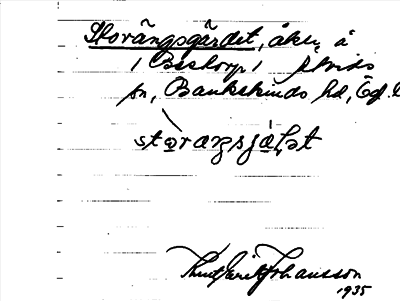 Storängsgärdet, åker å
/ Bestorp / Åtvids
sn, Bankekinds hd, Ög. l
storæŋsjæḷət
Knut Erik Johansson
1935